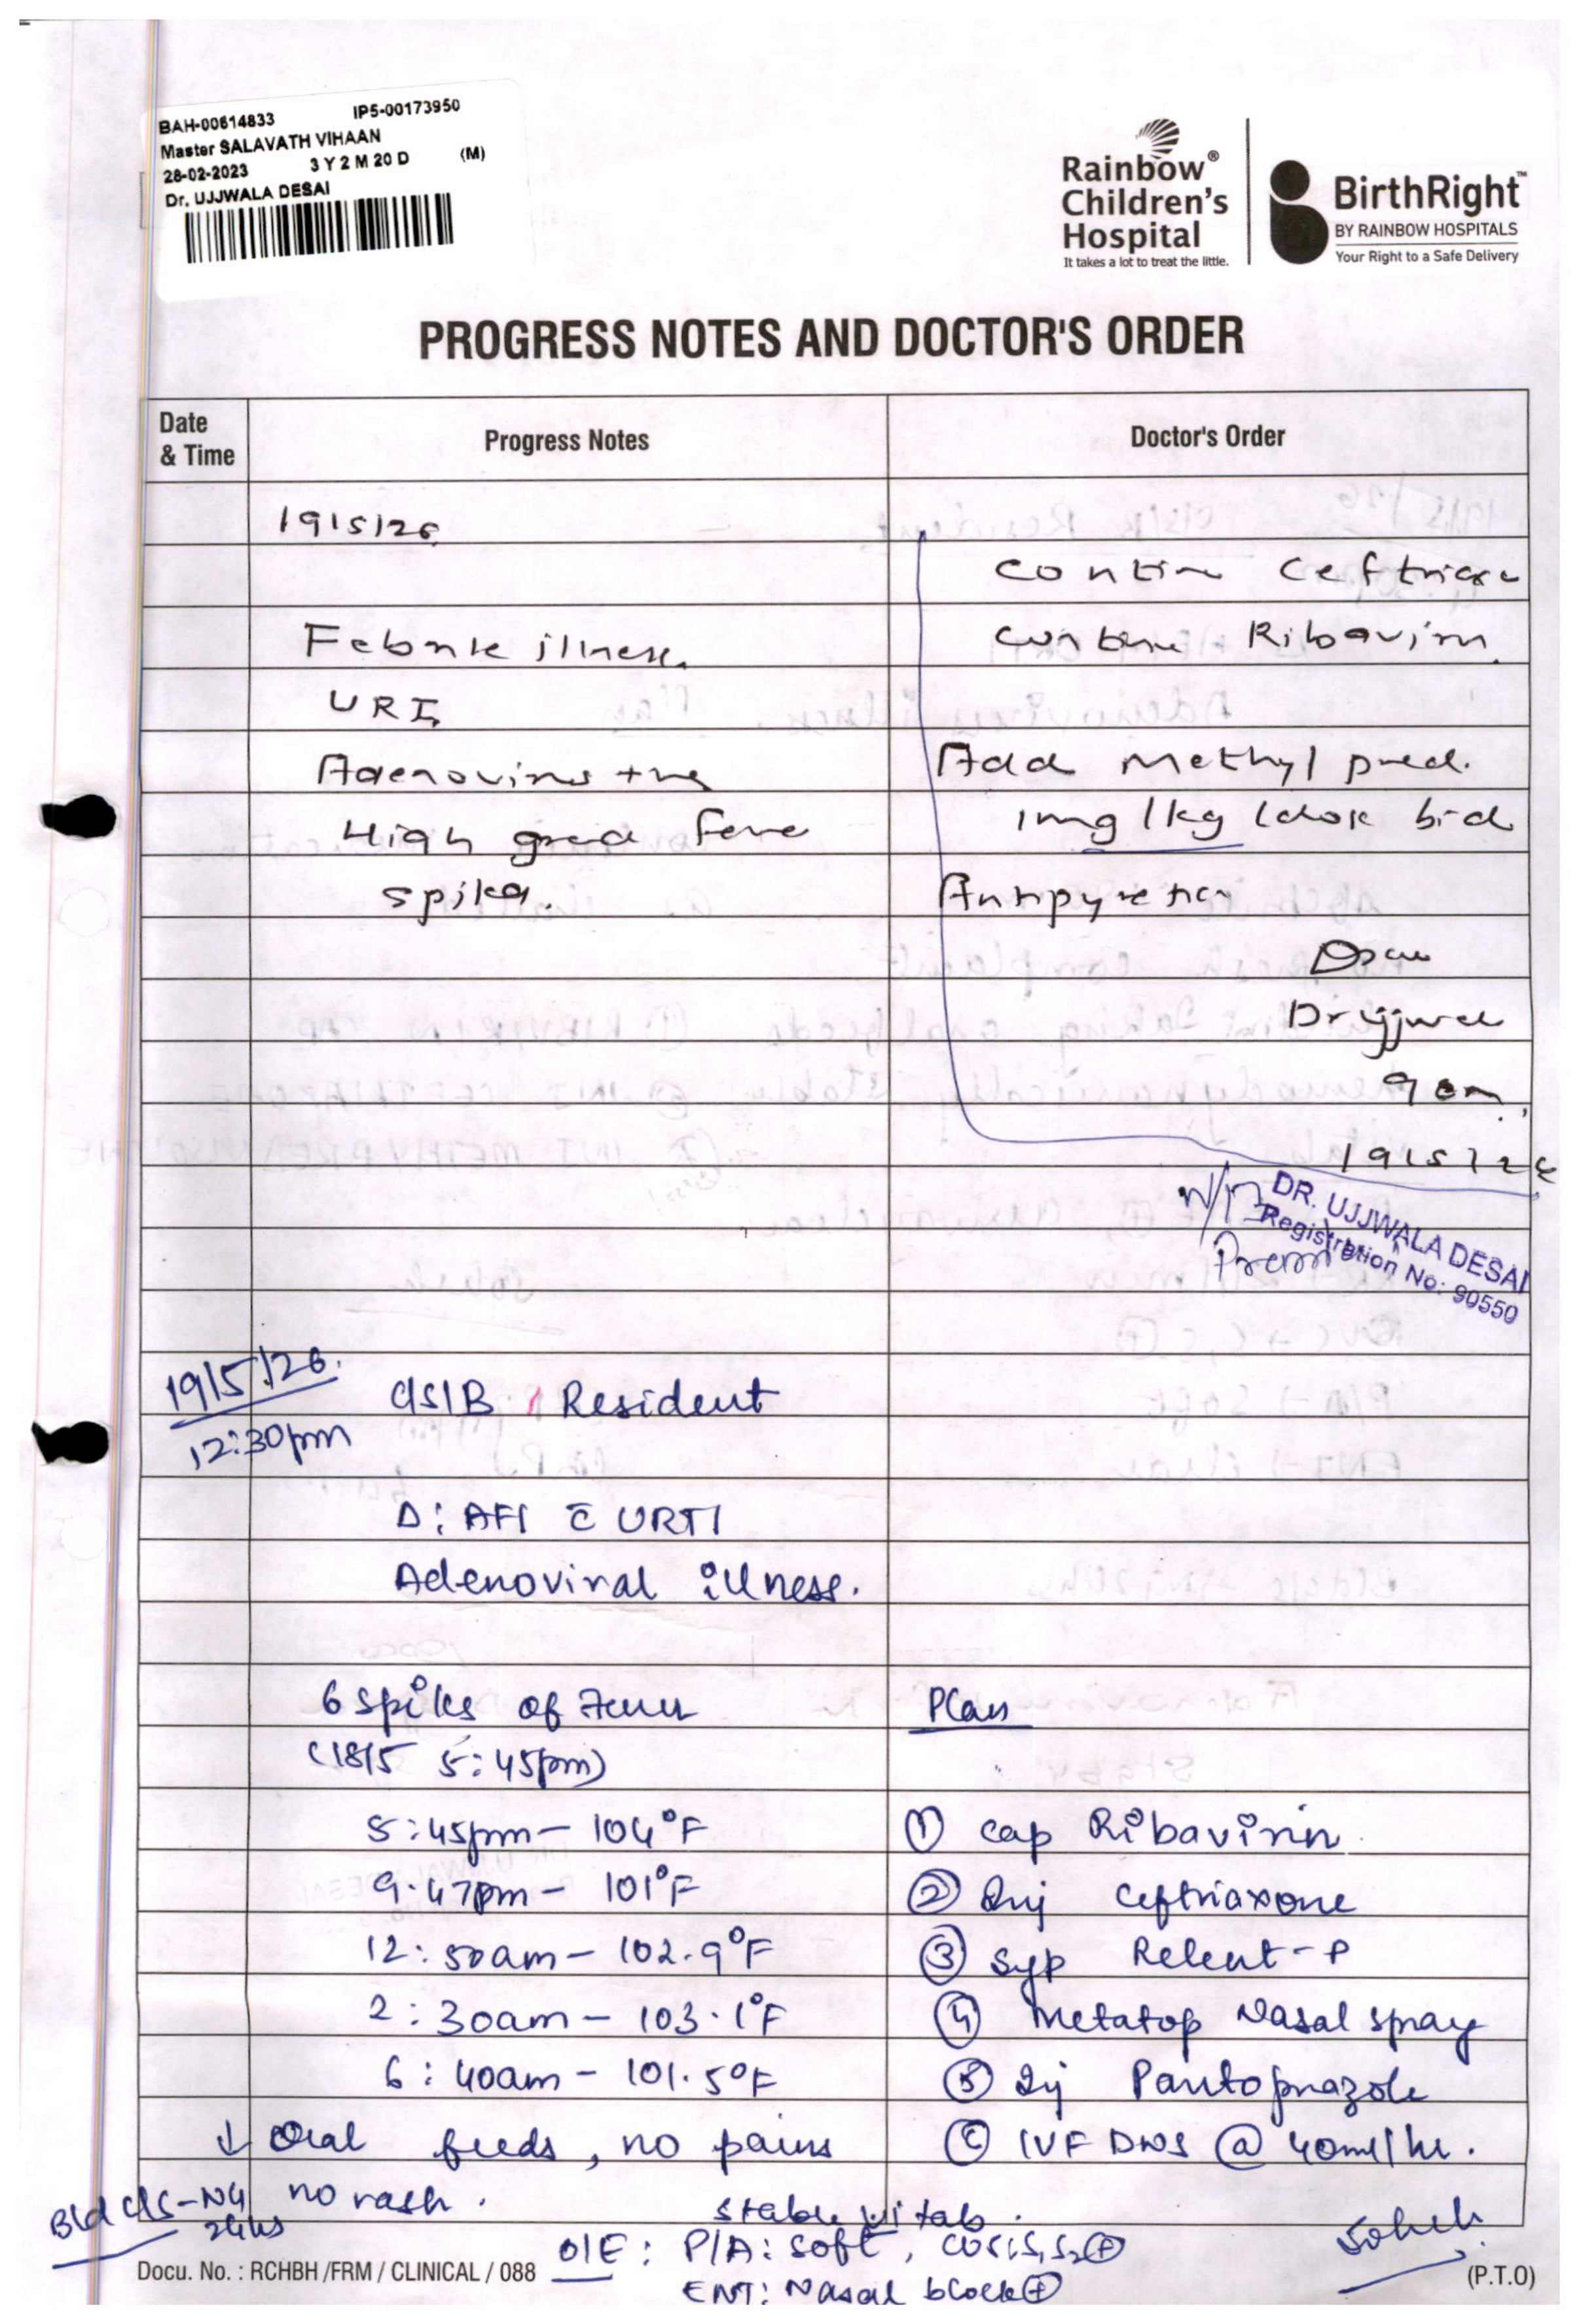 BAH-00614833 IP5-00173950
Master SALAVATH VIHAAN
28-02-2023 3 Y 2 M 20 D (M)
Dr. UJJWALA DESAI
Rainbow® Children's Hospital
It takes a lot to treat the little.
BirthRight™
BY RAINBOW HOSPITALS
Your Right to a Safe Delivery
PROGRESS NOTES AND DOCTOR'S ORDER
Date & Time Progress Notes Doctor's Order
19/5/26
Contin Ceftriaxo
Febrile illness. Contine Ribavirin.
URI
Adenovirus +ve Add Methyl pred.
High grade fever 1mg/kg/dose bid
spikes. Antipyretics
Dr Ujjwala
9 am.
19/5/26
DR. UJJWALA DESAI
Registration No: 90550
19/5/26. C/S/B / Resident
12:30pm
D: AFI c̄ URTI
Adenoviral illness.
6 spikes of Fever Plan
(18/5 5:45pm)
5:45pm - 104°F ① Cap Ribavirin.
9:47pm - 101°F ② Inj Ceftriaxone
12:50am - 102.9°F ③ Syp Relent-P
2:30am - 103.1°F ④ Metatop Nasal spray
6:40am - 101.5°F ⑤ Inj Pantoprazole
↓ Oral feeds, no pains ⑥ IVF DNS @ 40ml/hr.
Bld C/S-NG no rash.
24hrs stable vitals.
O/E: P/A: soft, CVS: S1S2⊕
ENT: Nasal block⊕
Docu. No. : RCHBH /FRM / CLINICAL / 088 (P.T.O)